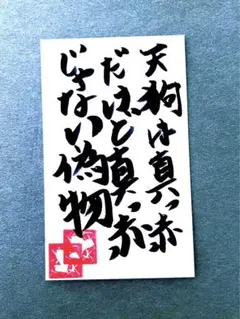 天狗は真っ赤
だけど真っ赤
じゃない偽物